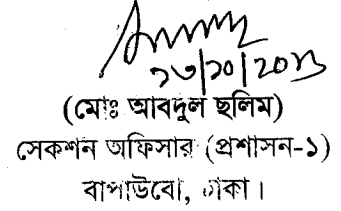 ২৩/১০/২০১৩
(মোঃ আবদুল ছলিম)
সেকশন অফিসার (প্রশাসন-১)
বাপাউবো, ঢাকা।